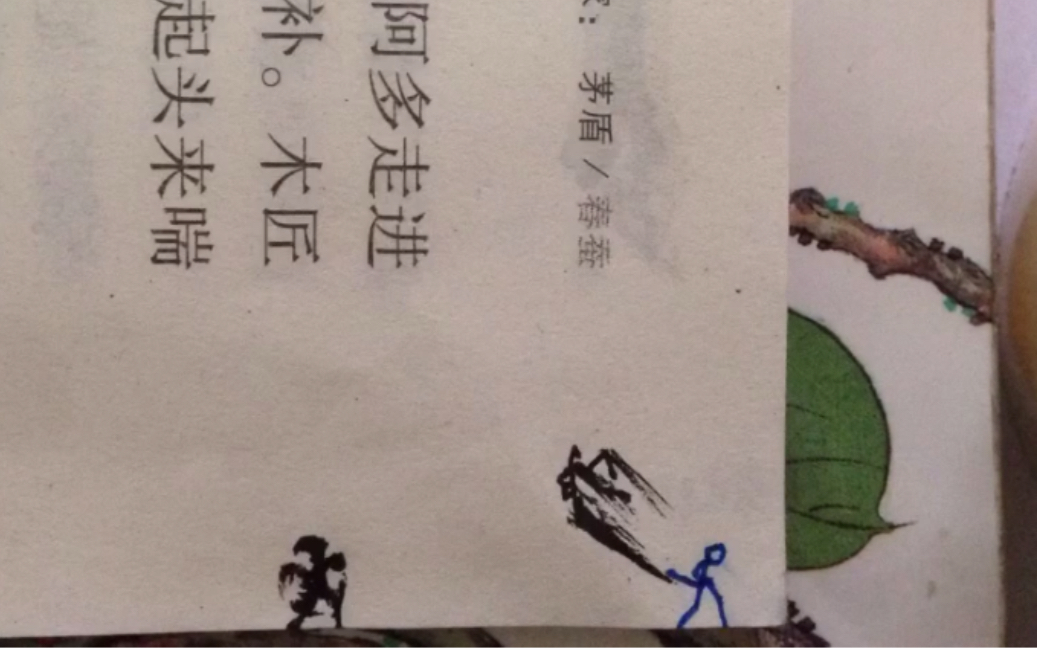 ：茅盾 / 春蚕
阿多走进
补。木匠
起头来喘